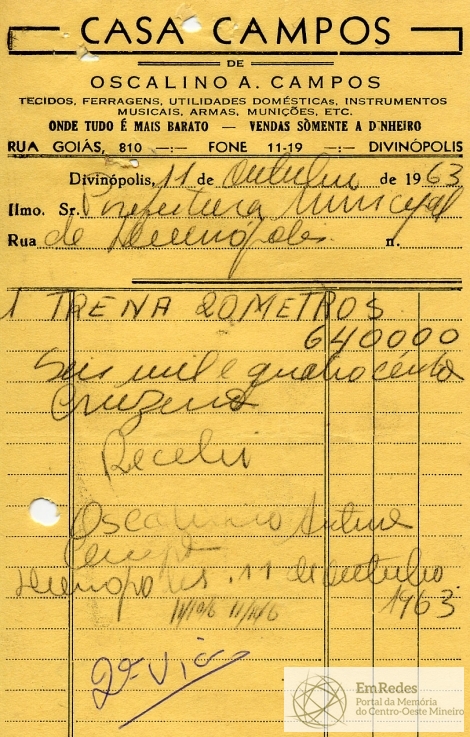 CASA CAMPOS
DE
OSCALINO A. CAMPOS
TECIDOS, FERRAGENS, UTILIDADES DOMÉSTICAS, INSTRUMENTOS
MUSICAIS, ARMAS, MUNIÇÕES, ETC.
ONDE TUDO É MAIS BARATO — VENDAS SÒMENTE A DINHEIRO
RUA GOIÁS, 810 —:— FONE 11-19 —:— DIVINÓPOLIS
Divinópolis, 11 de outubro de 1963
Ilmo. Sr. Prefeitura Municipal
Rua de Divinópolis n.
1 TRENA 20 METROS
640000
Seis mil e quatrocentos
Cruzeiros
Recebi
Oscalino Antune
Campos
Divinopolis, 11 de outubro
1963
2ª Via
EmRedes
Portal da Memória
do Centro-Oeste Mineiro